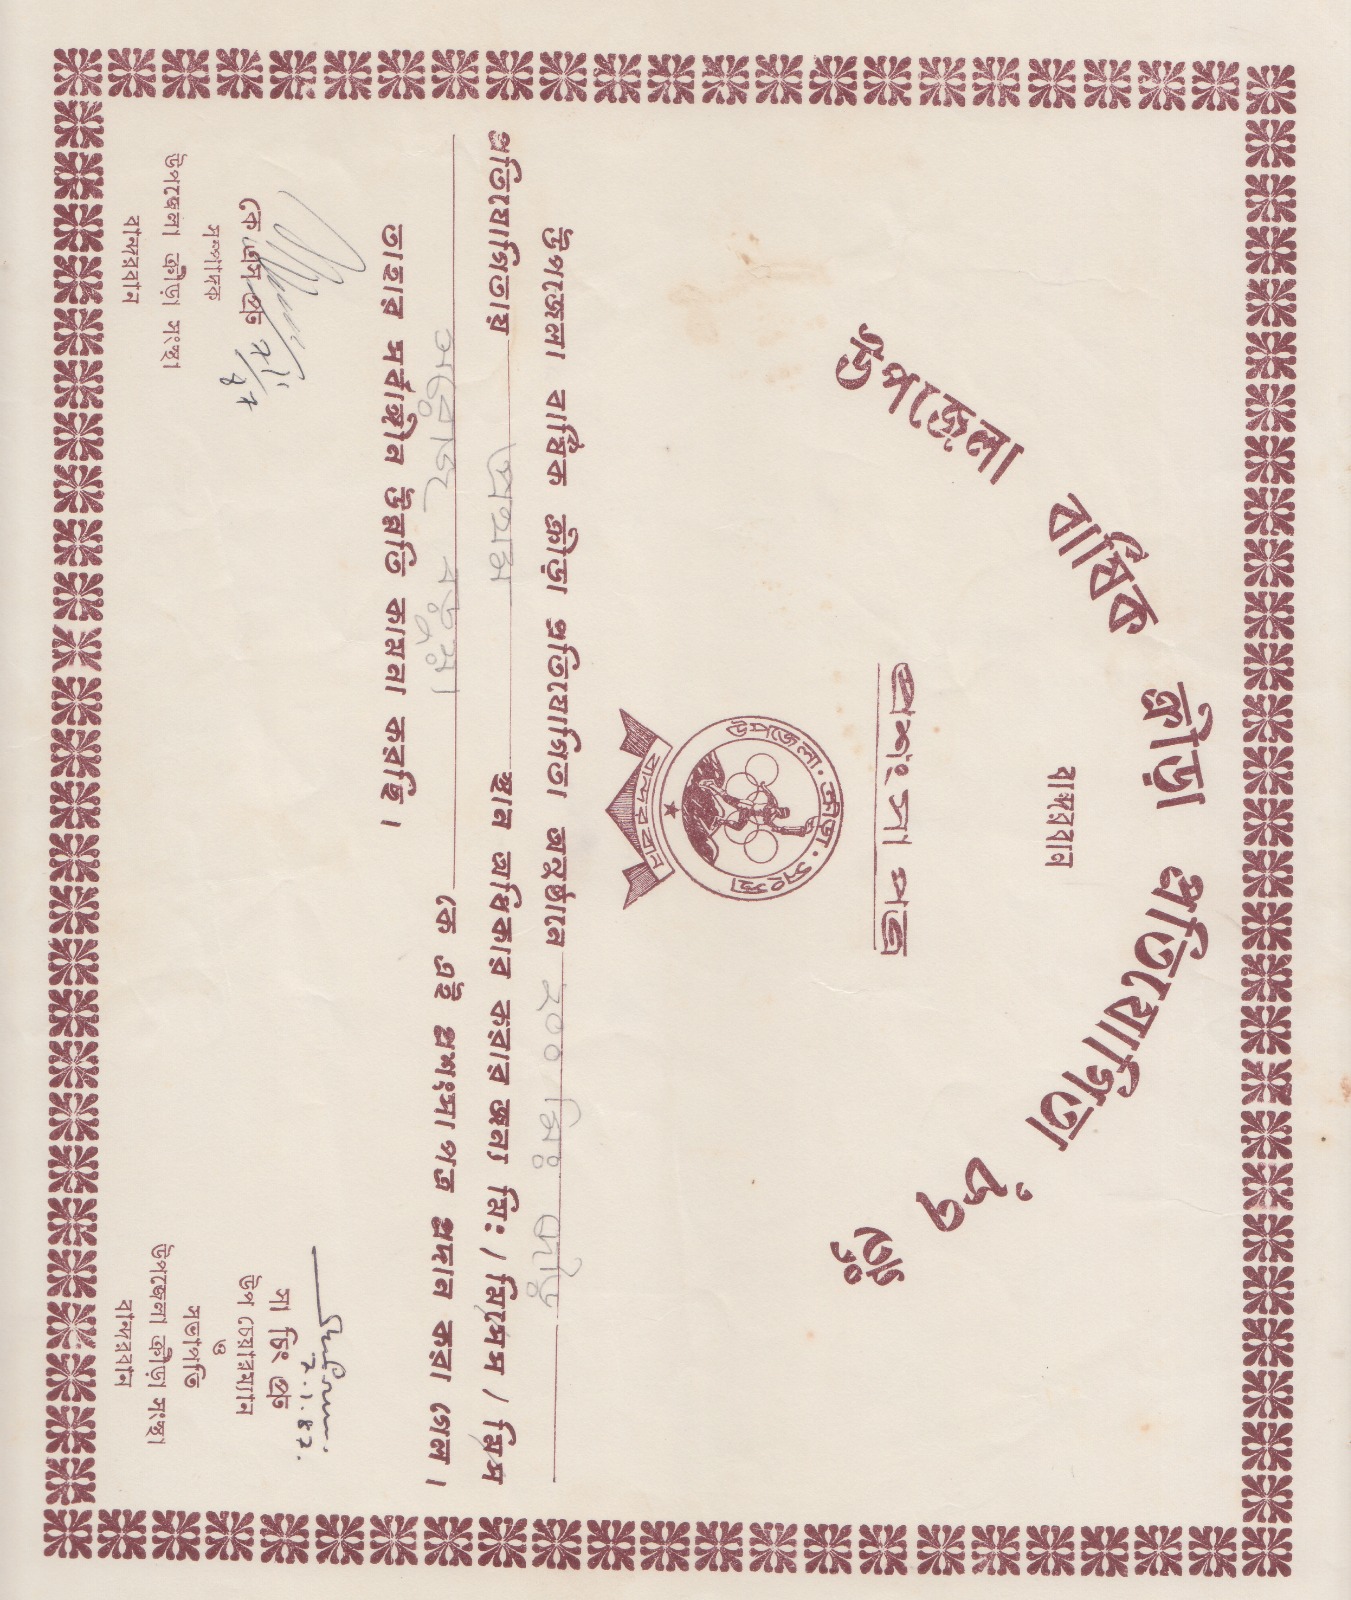 উপজেলা বার্ষিক ক্রীড়া প্রতিযোগিতা '৮৭ ইং
বান্দরবান
প্রশংসা পত্র
উপজেলা · ক্রীড়া · সংস্থা
বান্দরবান
উপজেলা বার্ষিক ক্রীড়া প্রতিযোগিতা অনুষ্ঠানে ২০০ মিঃ দৌড়
প্রতিযোগিতায় প্রথম স্থান অধিকার করার জন্য মি: / মিসেস / মিস
সরোজ বড়ুয়া কে এই প্রশংসা পত্র প্রদান করা গেল।
তাহার সর্বাঙ্গীন উন্নতি কামনা করছি।
কে এস প্রু 7/1/87
সম্পাদক
উপজেলা ক্রীড়া সংস্থা
বান্দরবান
7.1.87.
সা চিং প্রু
উপ চেয়ারম্যান
ও
সভাপতি
উপজেলা ক্রীড়া সংস্থা
বান্দরবান